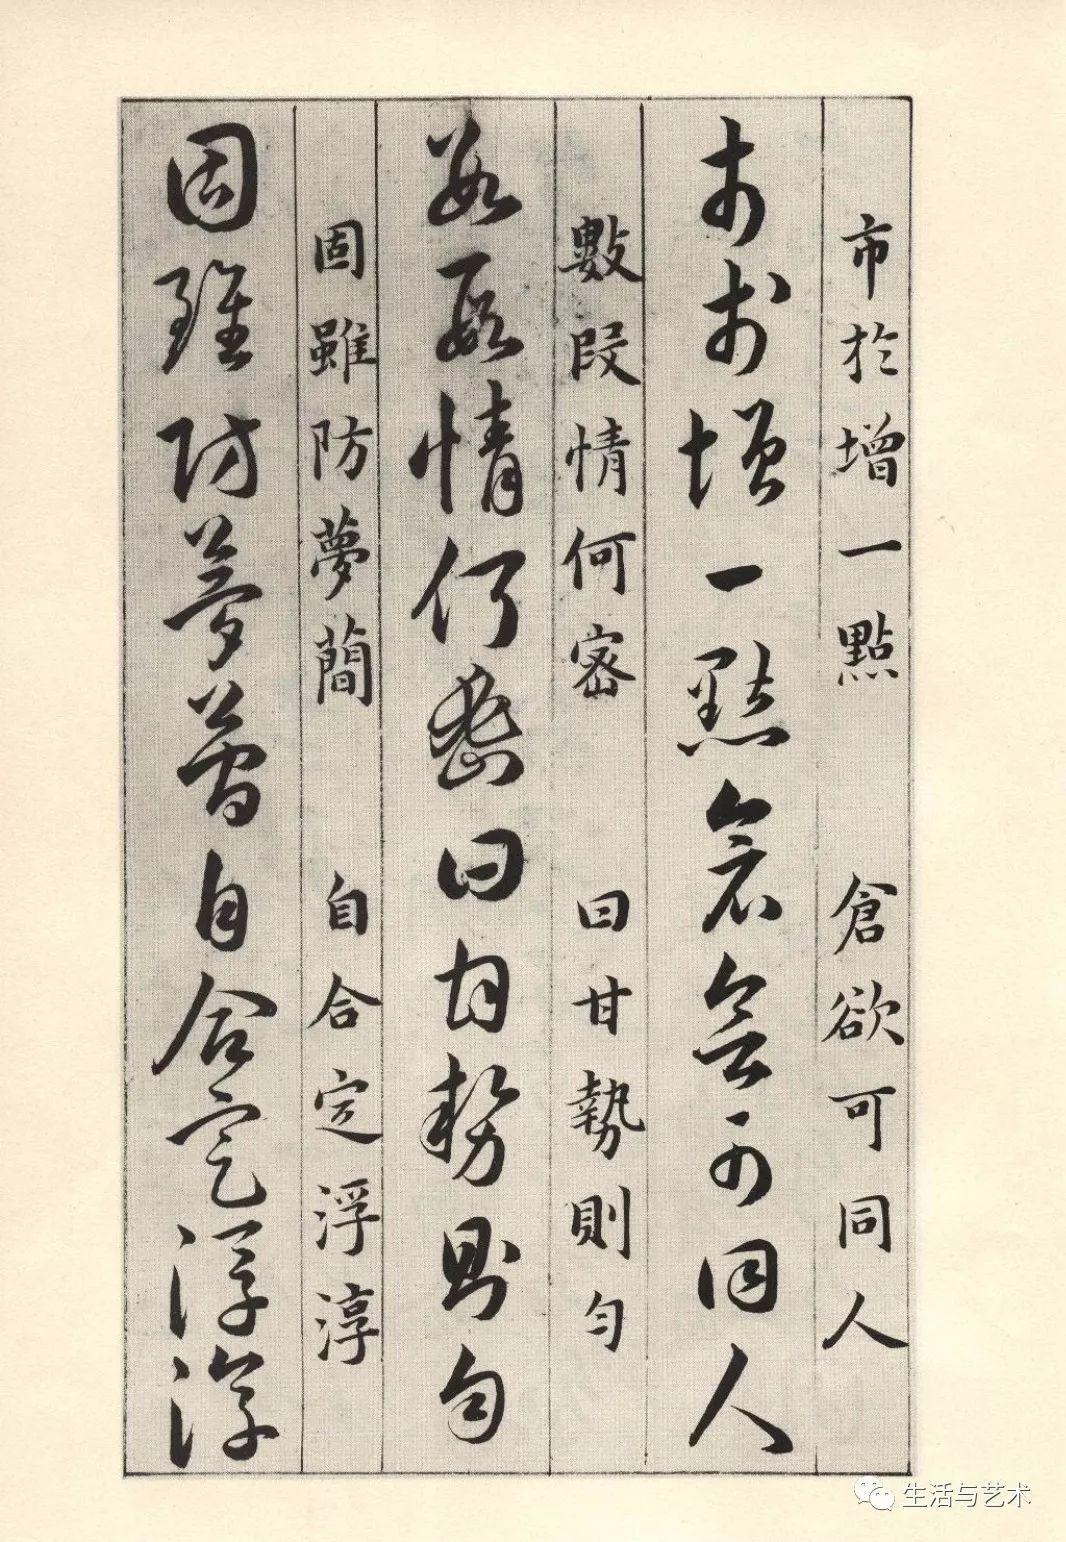 市於增一點　倉欲可同人
市於增一點倉欲可同人
數段情何密　曰甘勢則勻
數段情何密曰甘勢則勻
固雖防夢簡　自合定浮淳
固雖防夢簡自合定浮淳
生活与艺术